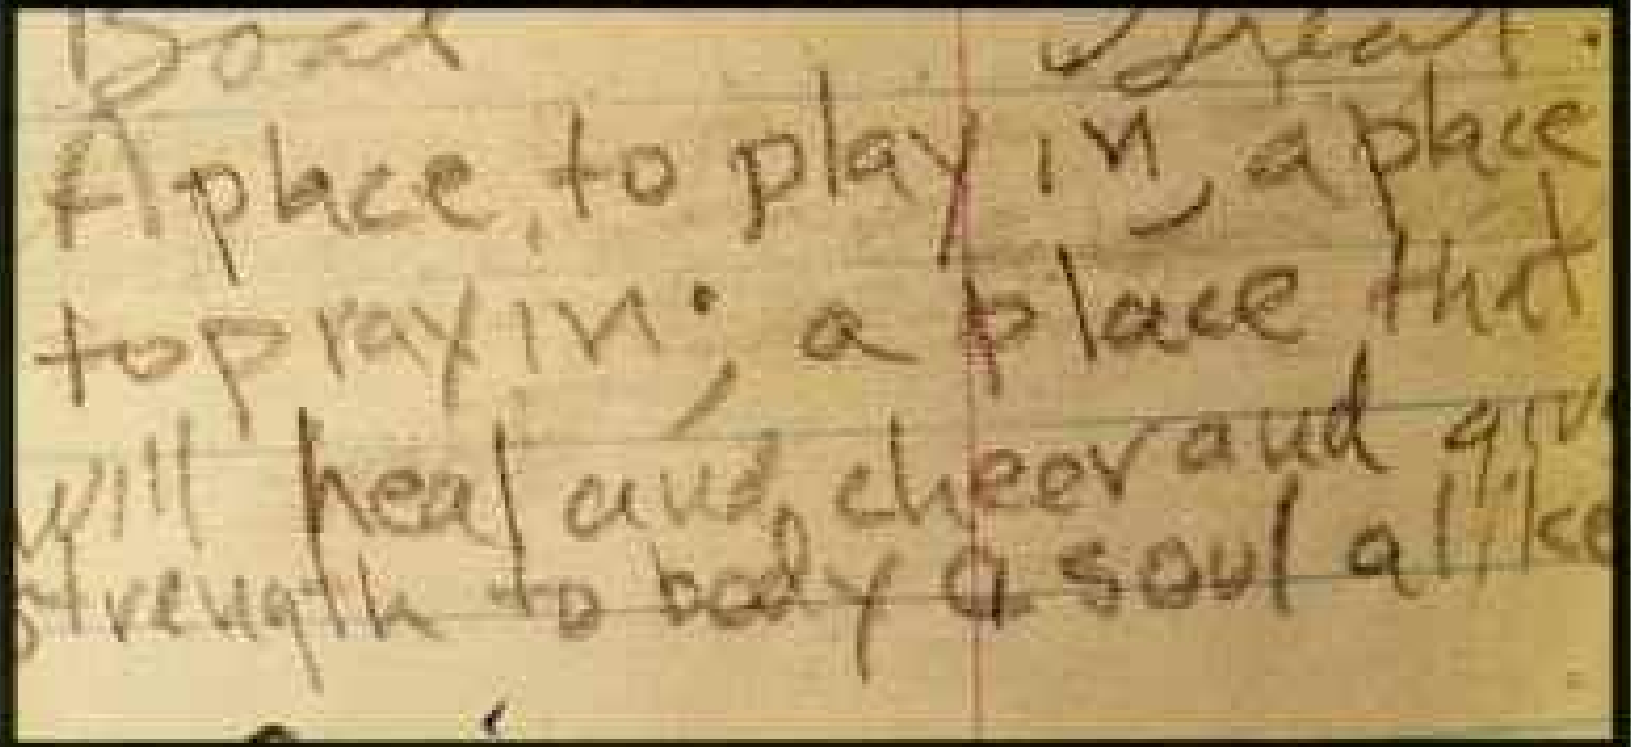 A place, to play in, a place
to pray in, a place that
will heal and, cheer and giv
strength to body a soul alike